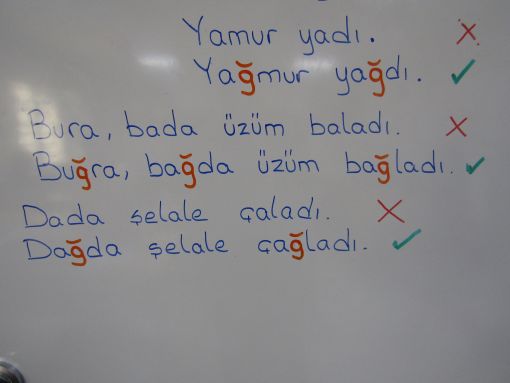 Yamur yadı. ✗
Yağmur yağdı. ✓
Bura, bada üzüm baladı. ✗
Buğra, bağda üzüm bağladı. ✓
Dada şelale çaladı. ✗
Dağda şelale çağladı. ✓